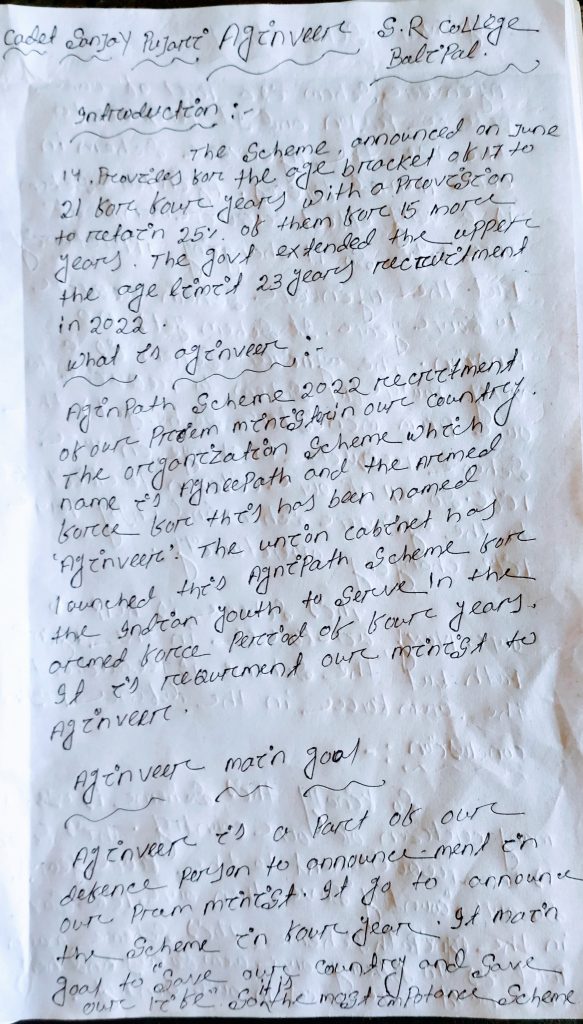 Cadet Sanjay Pujari Aginveer S.R College
Balipal.
Introduction :-
The Scheme, announced on June
14. Provides for the age bracket of 17 to
21 for four years with a Provision
to retain 25% of them for 15 more
years. The govt extended the upper
the age limit 23 years recruitment
in 2022.
what is aginveer :-
AginPath Scheme 2022 recruitment
of our Priem minister in our country.
The organization Scheme which
name is AgneePath and the Armed
force for this has been named
'Aginveer'. The union cabinet has
launched this AgniPath Scheme for
the Indian youth to Serve In the
aremed force Period of four years.
It is requirment our minist to
Aginveer.
Aginveer main goal
Aginveer is a Part of our
defence Person to announce-ment in
our Pram minist. It go to announce
the Scheme in four year. It main
goal to "Save our country and Save
our life" So it is the most impotance Scheme